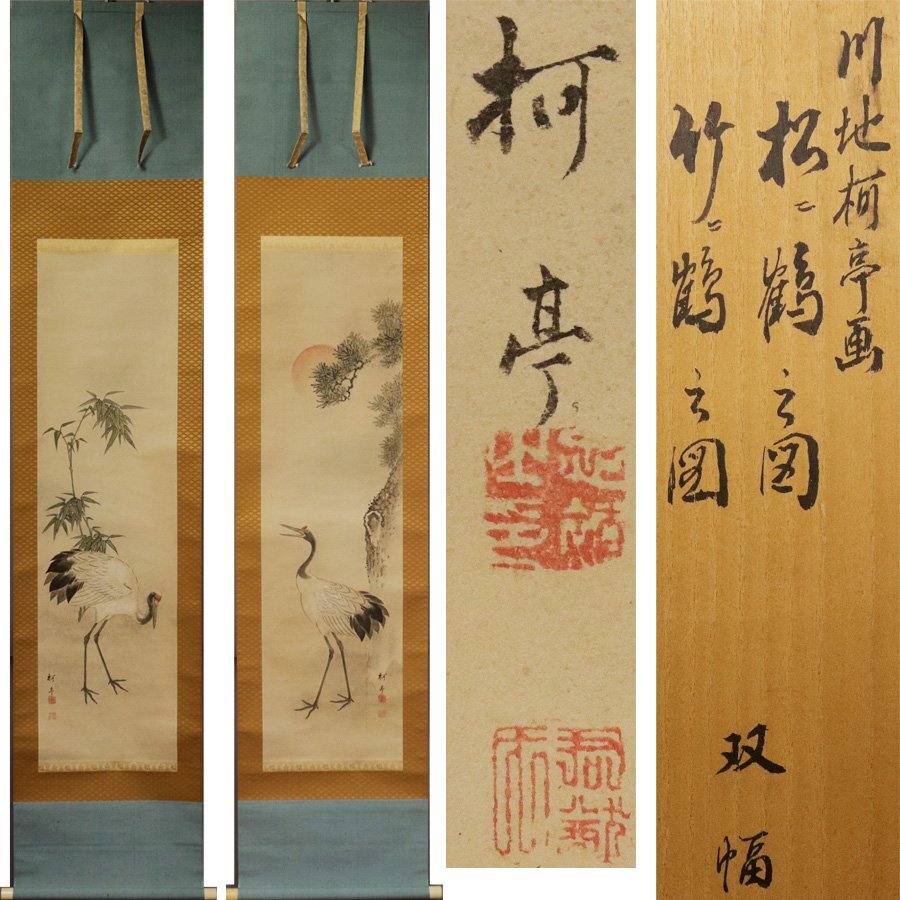 柯亭
柯亭
柯亭
川地柯亭画
松ニ鶴之図
竹ニ鶴之図
双幅